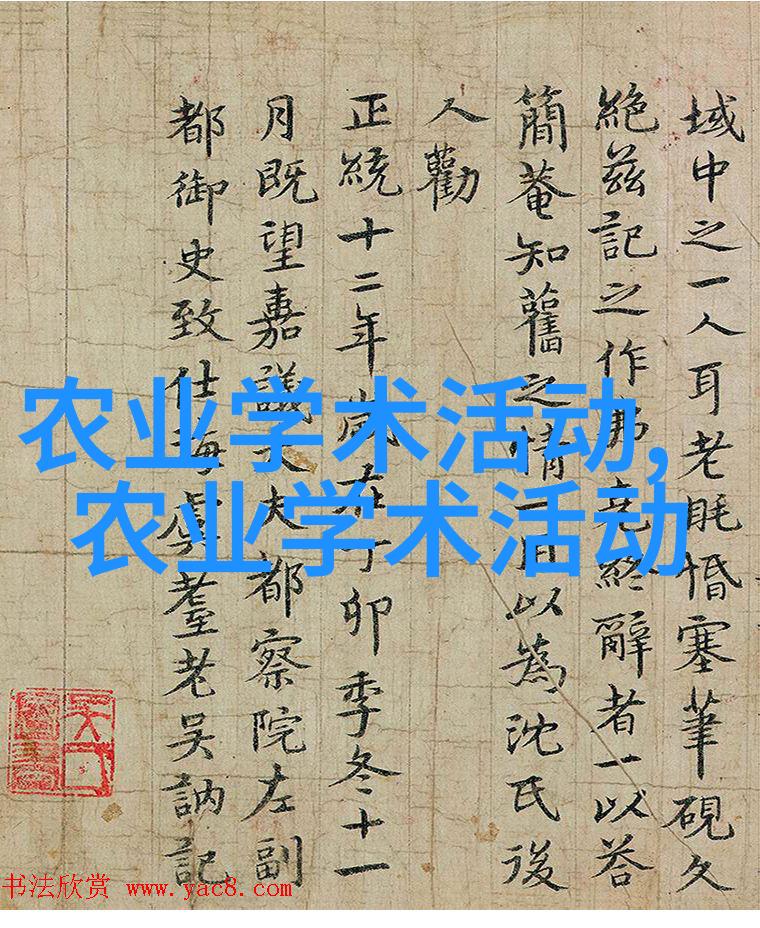 域中之一人耳老眊惛塞筆硯久
絶茲記之作弗克終辭者一以荅
簡菴知舊之情一旦以為沈氏後
人勸
正統十二年歲在丁卯季冬十一
月既望嘉議大夫都察院左副
都御史致仕海虞耋老吳訥記
农业学术活动,
农业学术活动
书法欣赏 www.yac8.com